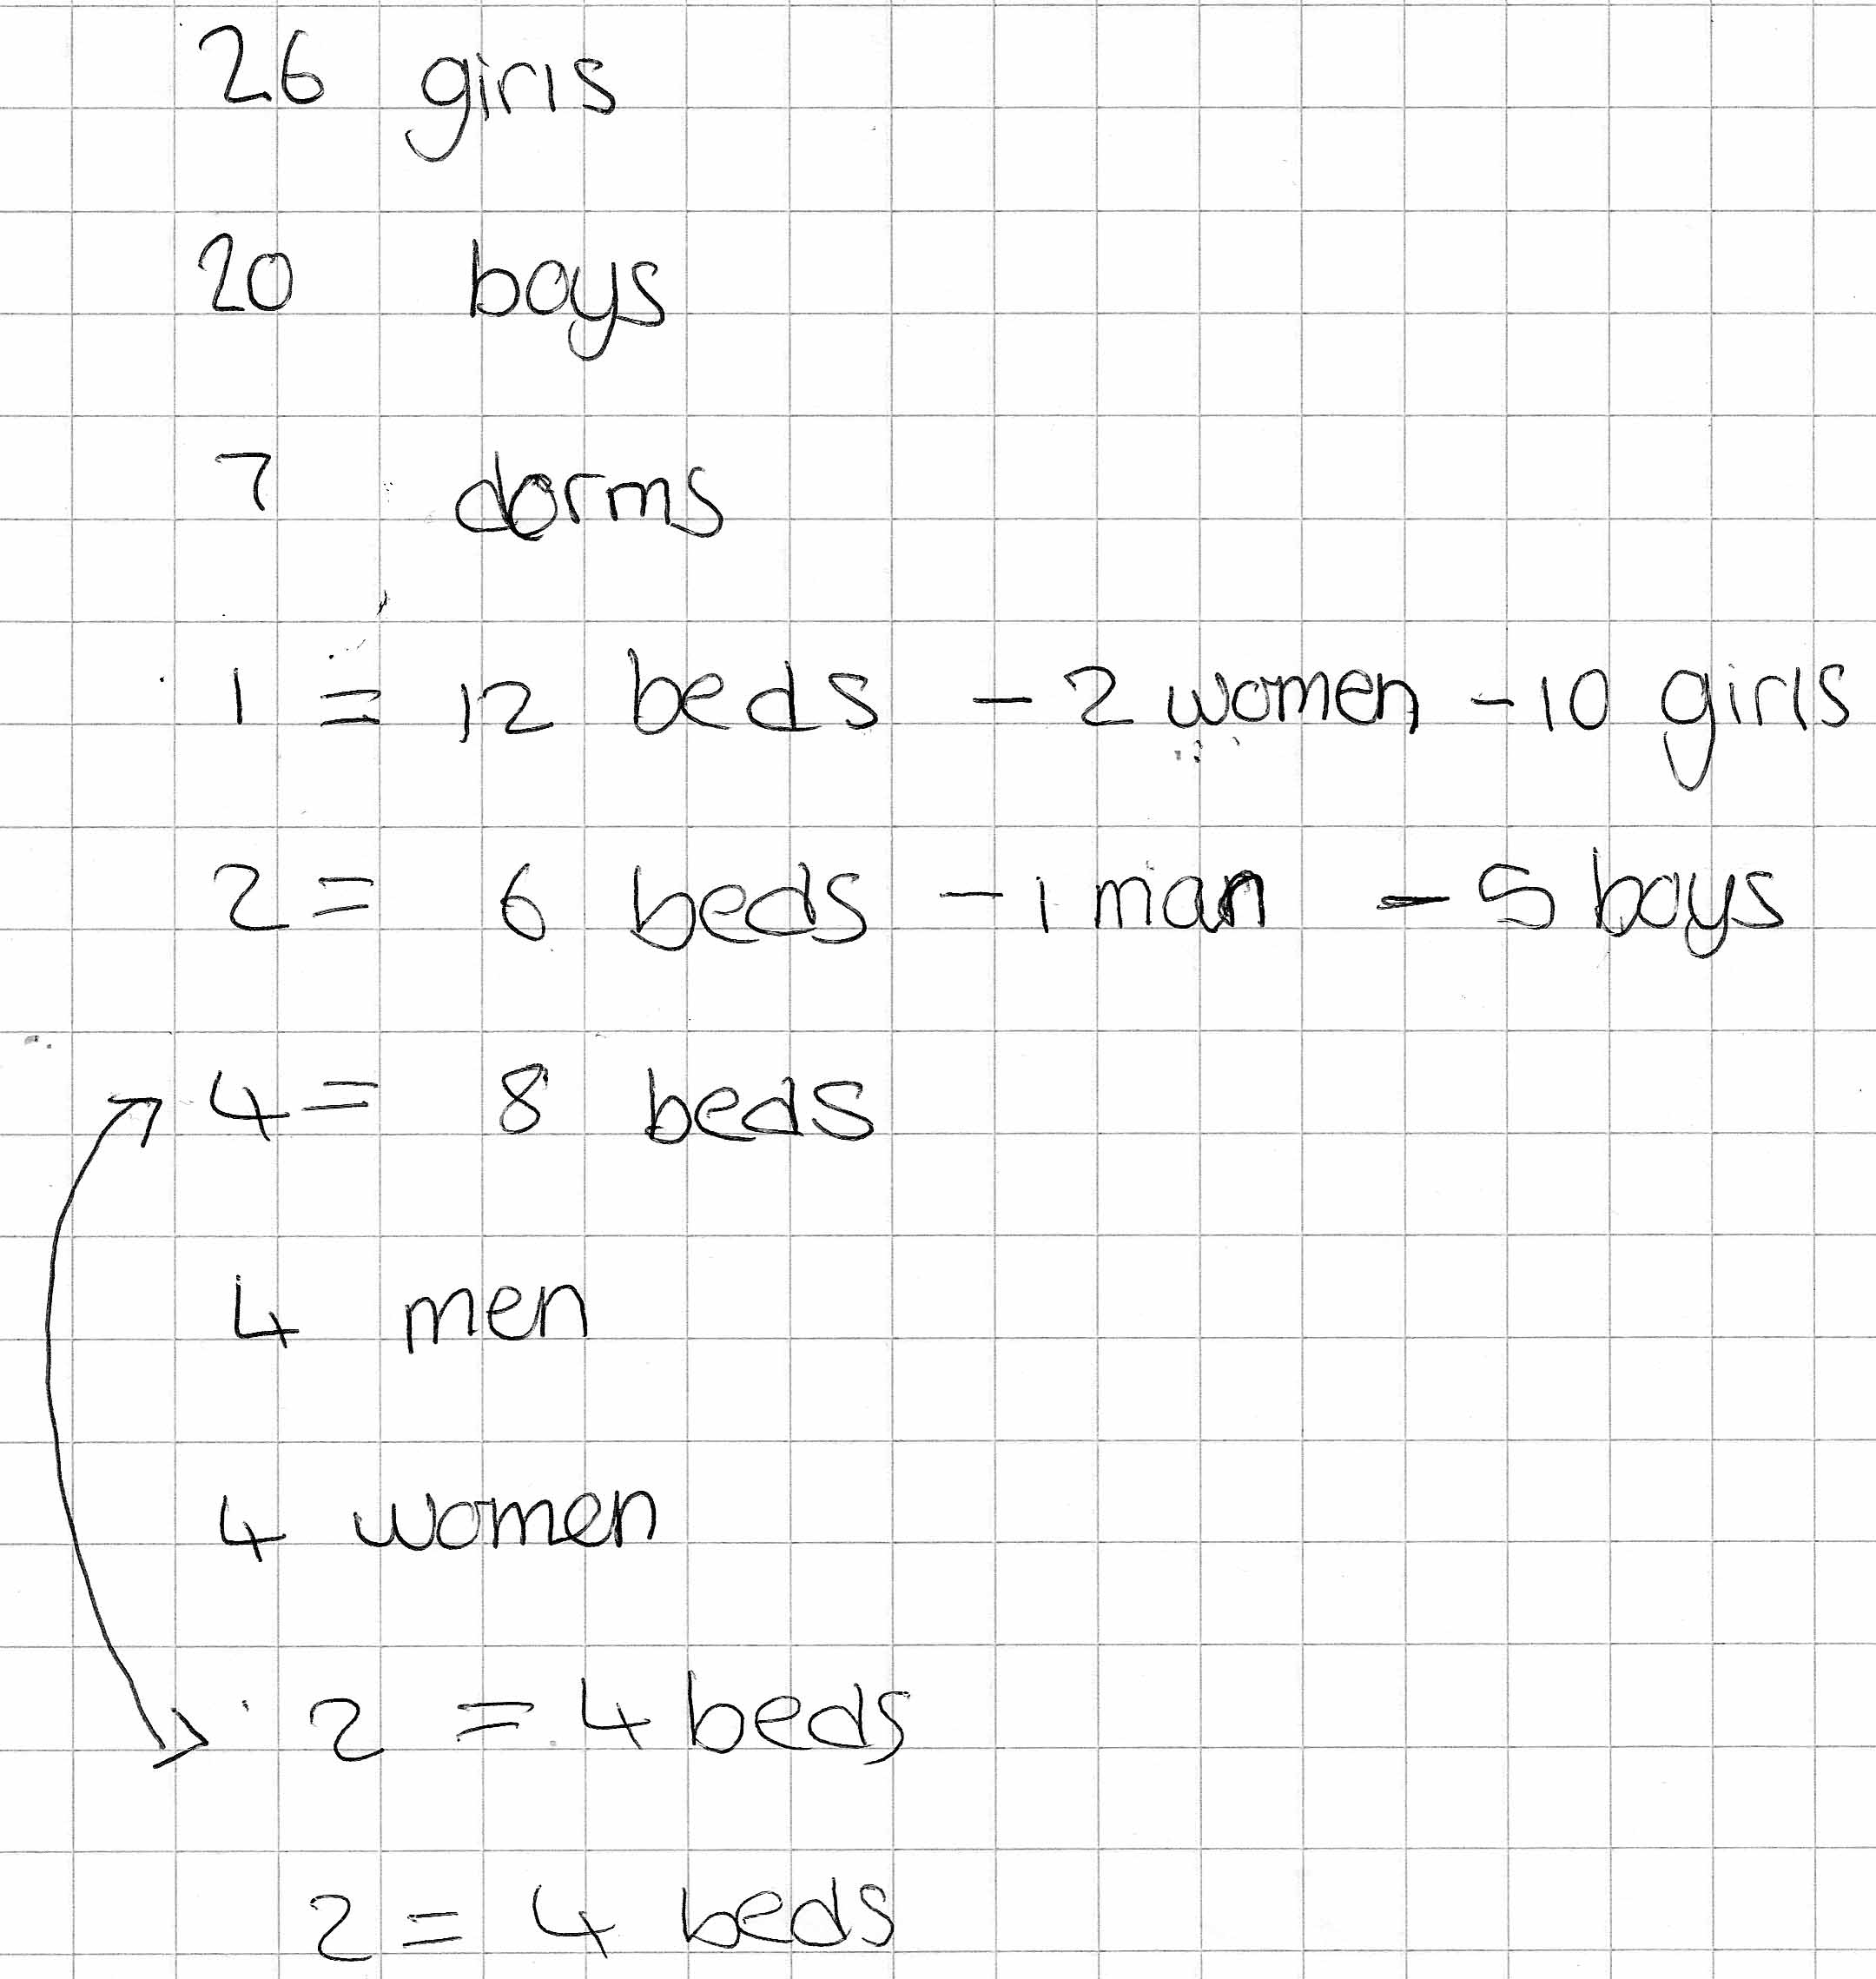 26 girls
20 boys
7 dorms
1 = 12 beds - 2 women - 10 girls
2 = 6 beds - 1 man - 5 boys
4 = 8 beds
4 men
4 women
2 = 4 beds
2 = 4 beds